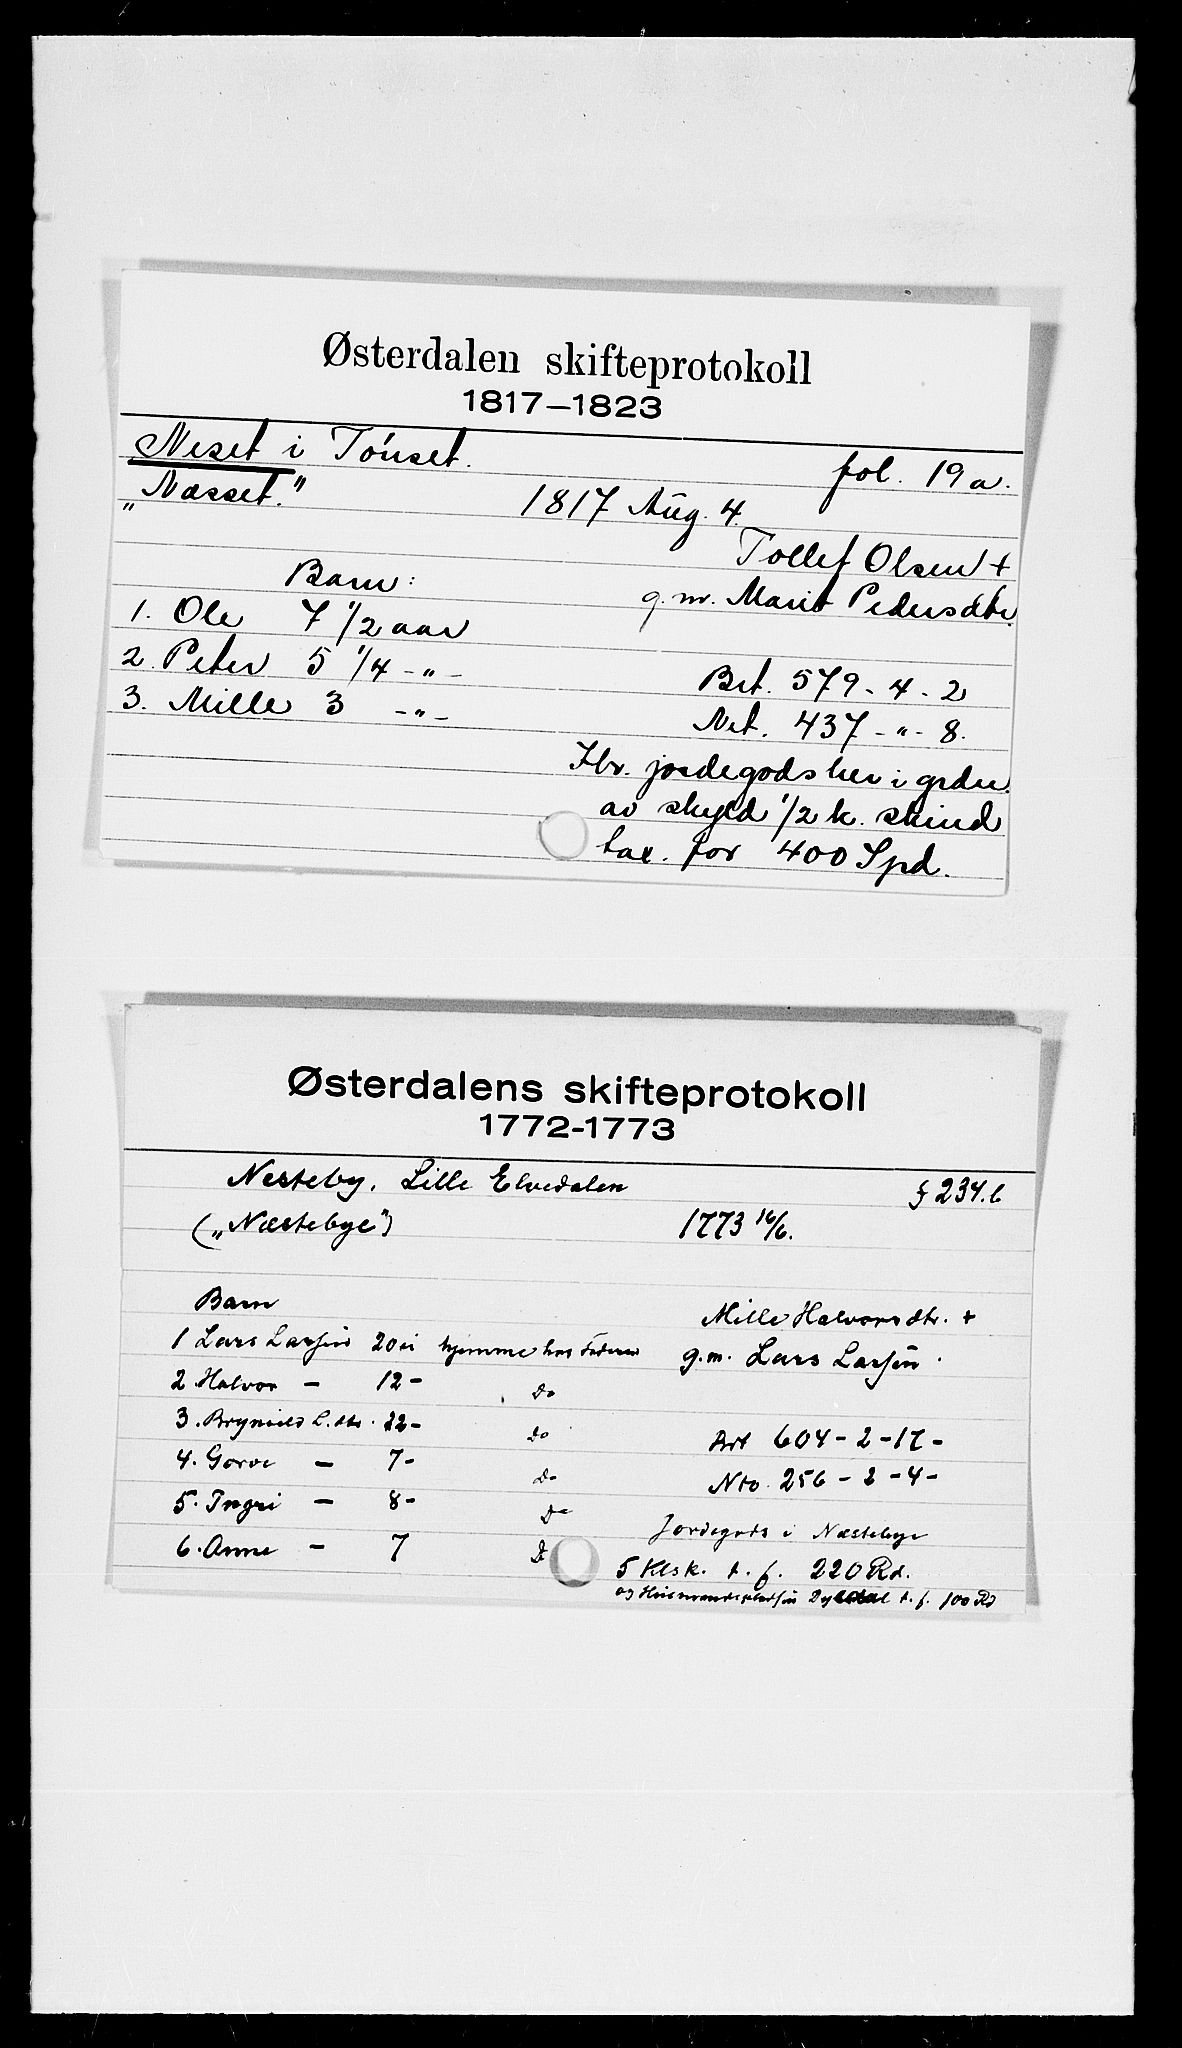 Østerdalen skifteprotokoll
1817–1823
Neset i Tönset.
fol. 19a.
„Næsset."
1817 Aug. 4.
Tollef Olsen +
g. m. Marit Pedersdtr.
Barn:
1. Ole 7 1/2 aar
2. Peter 5 1/4 - " -
3. Mille 3 - " -
Brt. 579 - 4 - 2
Net. 437 - " - 8.
Ibr. jordegods her i grden.
av skyld 1/2 k. skind
tax. for 400 Spd.
Østerdalens skifteprotokoll
1772-1773
Nesteby, Lille Elvedalen
f 234.b
(„Næstebye")
1773 16/6.
Mille Halvorsdtr. +
g.m. Lars Larsen.
Barn
1 Lars Larsen 20 hjemme hos Faderen
2. Halvor - 12 - Do
3. Brynild L.dtr. 22 - Do
4. Gorve - 7 - Do
5. Ingri - 8 - Do
6. Anne - 7 D
Brt 604 - 2 - 17 -
Nto. 256 - 2 - 4 -
Jordegods i Næstebye
5 Klsk. t. f. 220 Rd.
og Husmandspladsen t. f. 100 Rd